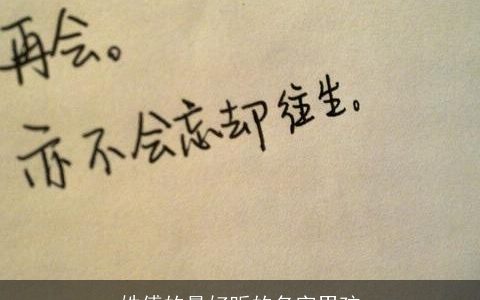 再会。
亦不会忘却往生。
姓傅的最好听的名字男孩